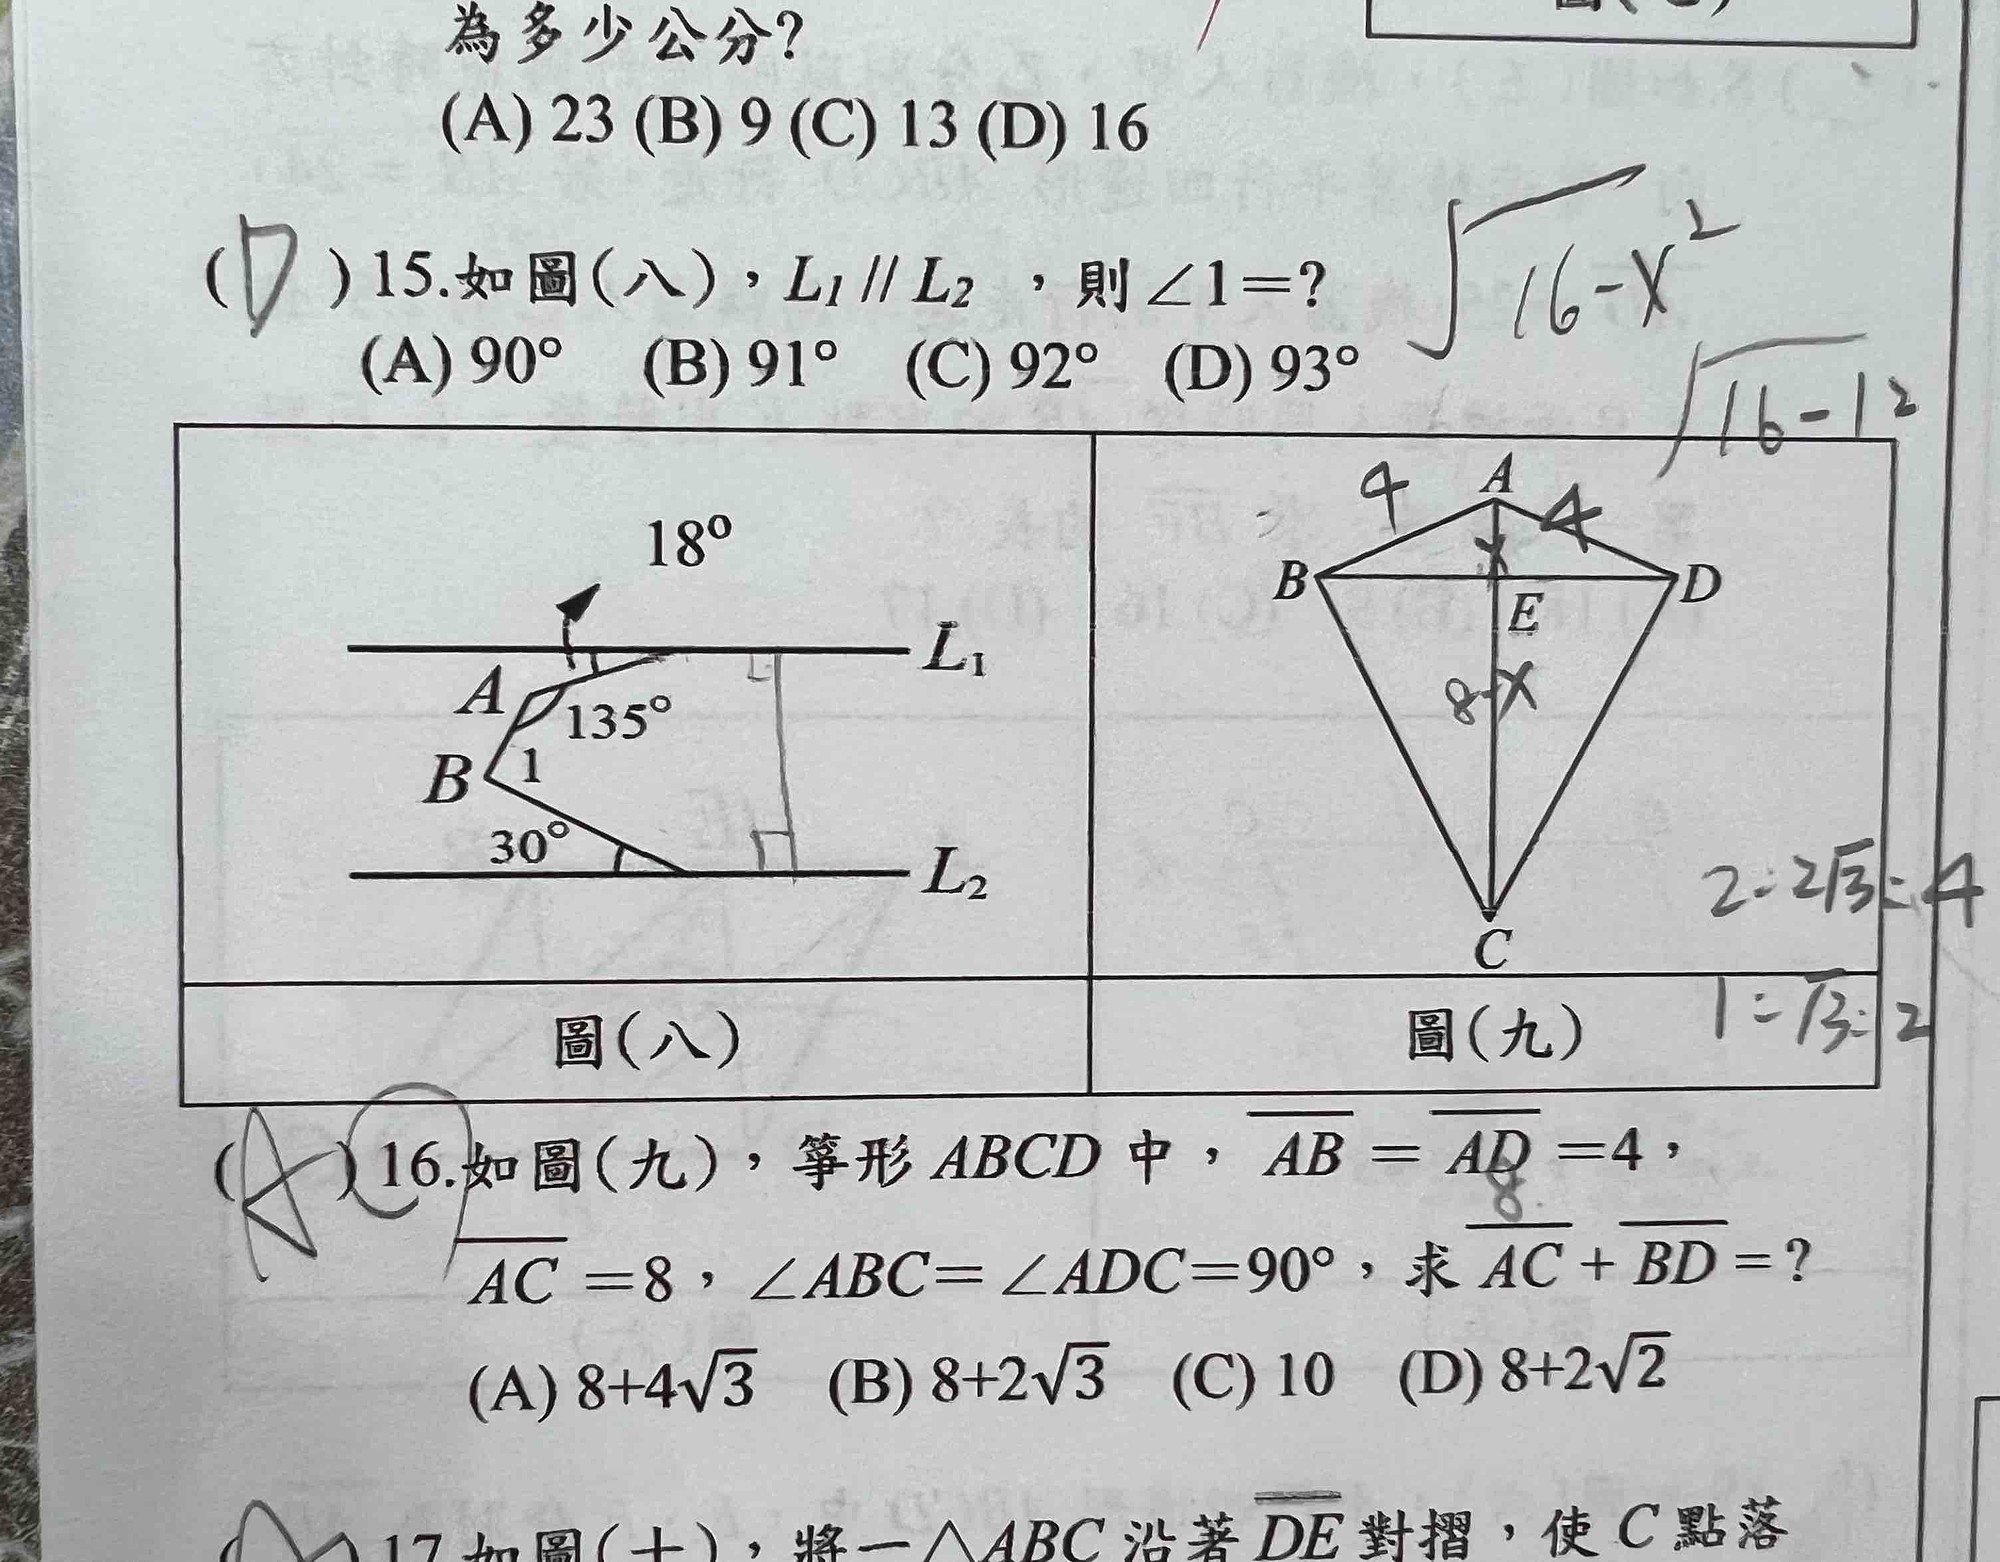 為多少公分?
(A) 23 (B) 9 (C) 13 (D) 16
(D) 15.如圖(八)，L1 // L2 ，則∠1=?
(A) 90° (B) 91° (C) 92° (D) 93°
√16-x²
√16-1²
18°
L1
A
135°
B
1
30°
L2
4
A
4
x
B
D
E
8-x
C
2:2√3:4
圖(八)
圖(九)
1:√3:2
(A) 16.如圖(九)，箏形 ABCD 中，AB = AD =4，
8
AC =8，∠ABC=∠ADC=90°，求 AC + BD = ?
(A) 8+4√3 (B) 8+2√3 (C) 10 (D) 8+2√2
17.如圖(十)，將一△ABC 沿著 DE 對摺，使 C 點落